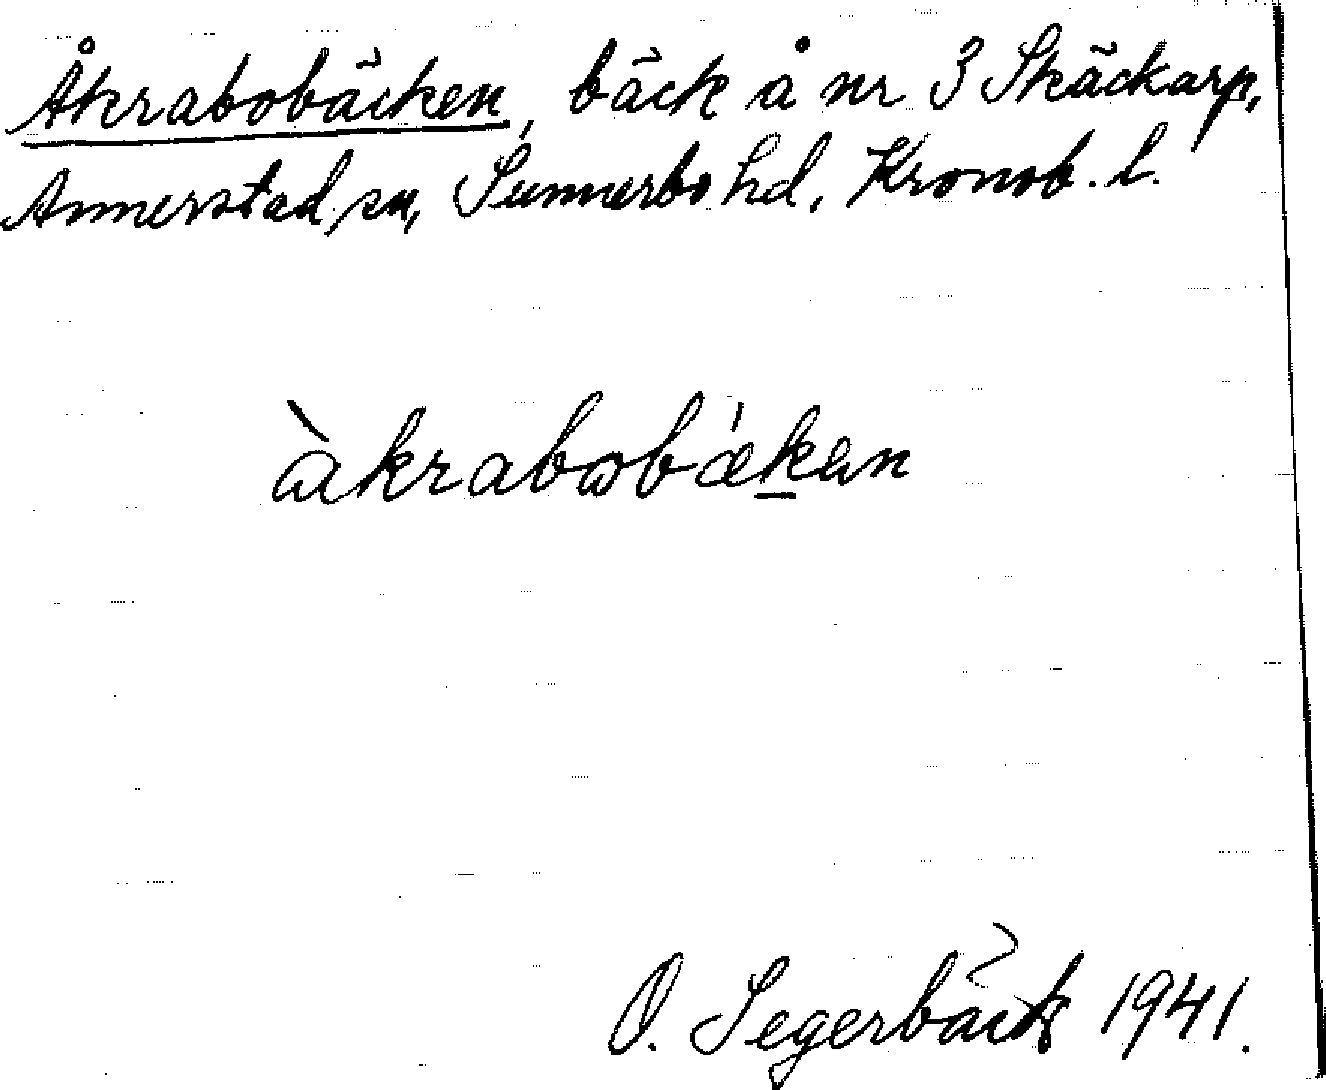 Åkrabobäcken, bäck å nr 3 Skäckarp,
Annerstad sn, Sunnerbo hd, Kronob. l.
àkrabωbǽkən
O. Segerbäck 1941.